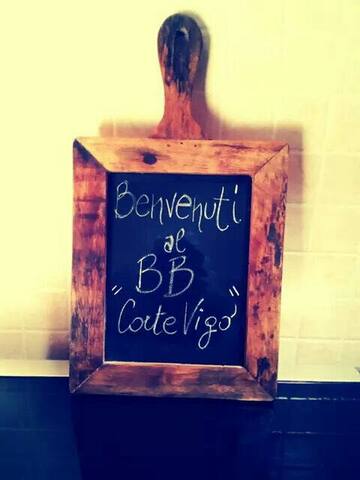 Benvenuti
al
BB
"Corte Vigo"